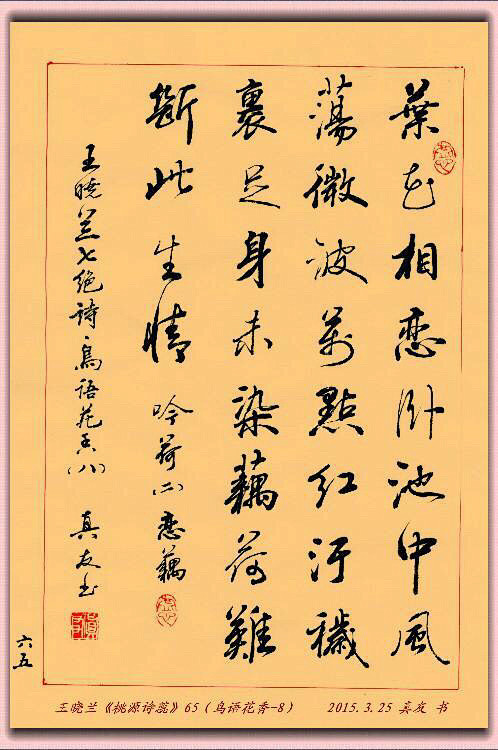 葉花相恋卧池中風
蕩微波萬點紅汙穢
裹足身未染藕荷難
斷此生情 吟荷(二)恋藕
王晓兰七绝诗·鳥语花香(八) 真友书
六五
王晓兰《桃源诗蕊》65(鸟语花香-8) 2015.3.25 真友 书